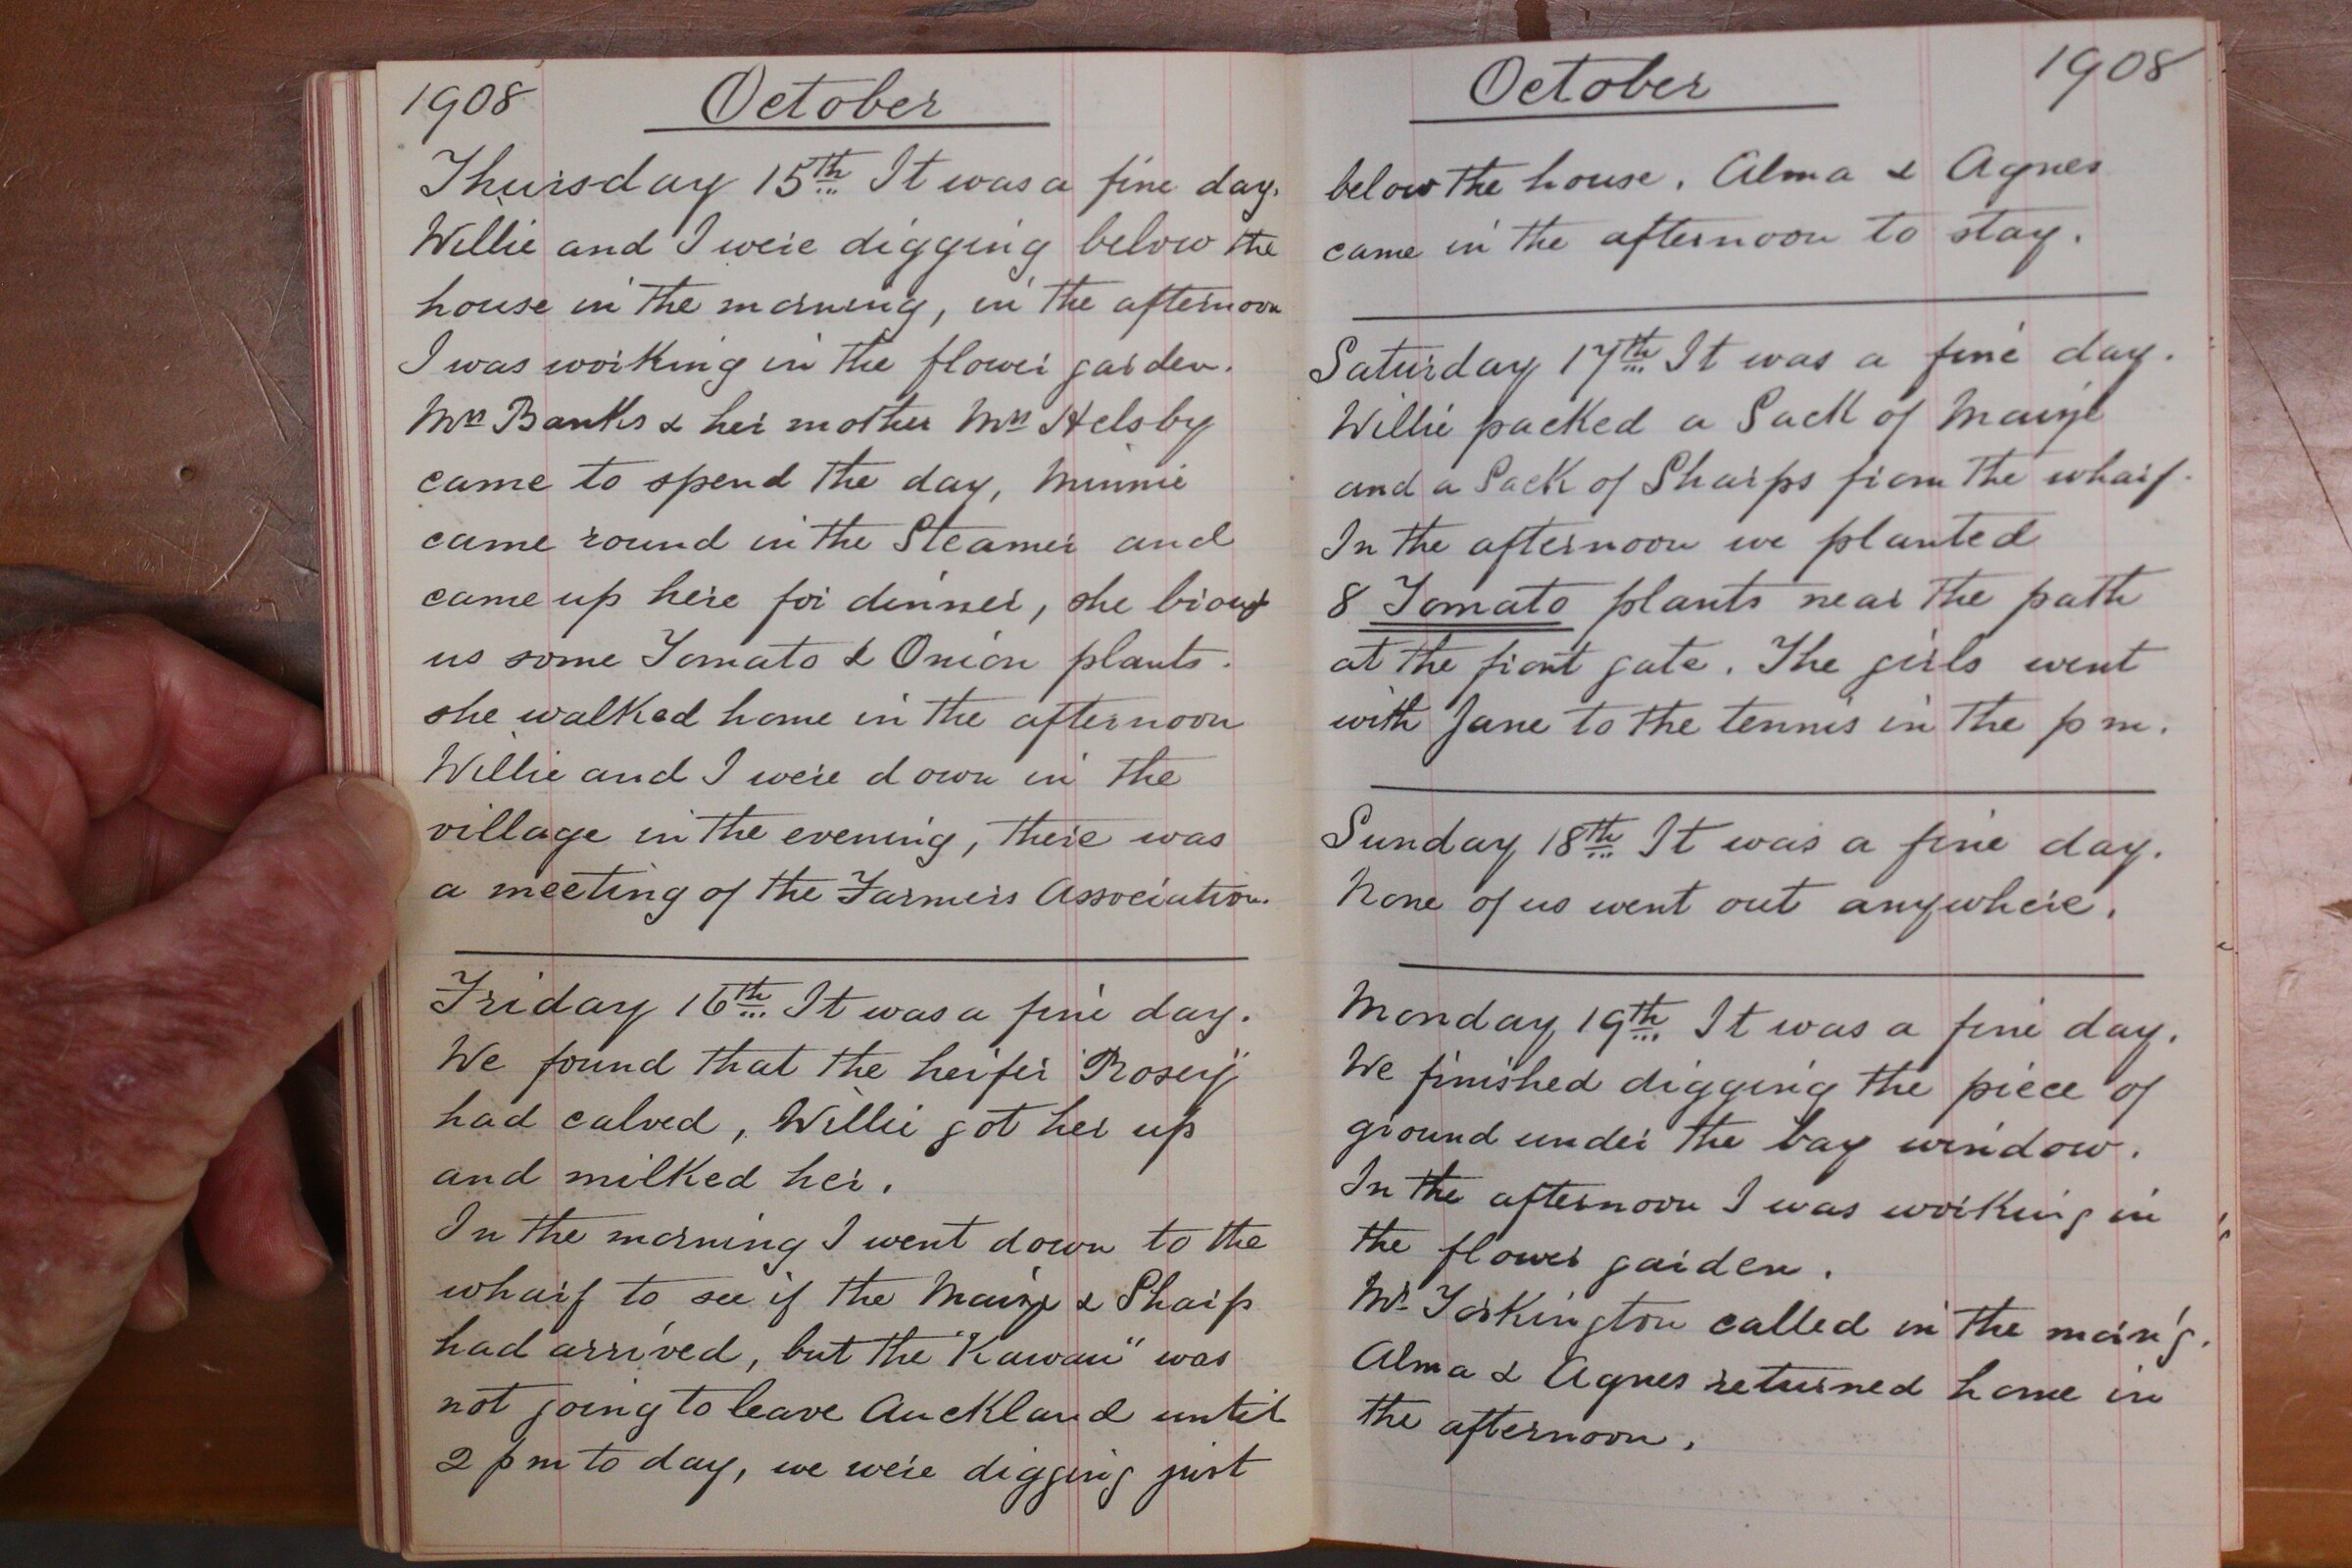 1908 October
Thursday 15th It was a fine day.
Willie and I were digging below the
house in the morning, in the afternoon
I was working in the flower garden.
Mrs Banks & her mother Mrs Helsby
came to spend the day, Minnie
came round in the Steamer and
came up here for dinner, she brout
us some Tomato & Onion plants.
she walked home in the afternoon
Willie and I were down in the
village in the evening, there was
a meeting of the Farmers Association.
Friday 16th It was a fine day.
We found that the heifer "Rosey"
had calved, Willie got her up
and milked her.
In the morning I went down to the
wharf to see if the Maize & Sharp
had arrived, but the "Kawau" was
not going to leave Auckland until
2 pm to day, we were digging just
October 1908
below the house. Alma & Agnes
came in the afternoon to stay.
Saturday 17th It was a fine day.
Willie packed a Sack of Maize
and a Sack of Sharps from the wharf.
In the afternoon we planted
8 Tomato plants near the path
at the front gate. The girls went
with Jane to the tennis in the pm.
Sunday 18th It was a fine day.
None of us went out anywhere.
Monday 19th It was a fine day.
We finished digging the piece of
ground under the bay window.
In the afternoon I was working in
the flower garden.
Mr Torkington called in the morn'g.
Alma & Agnes returned home in
the afternoon.